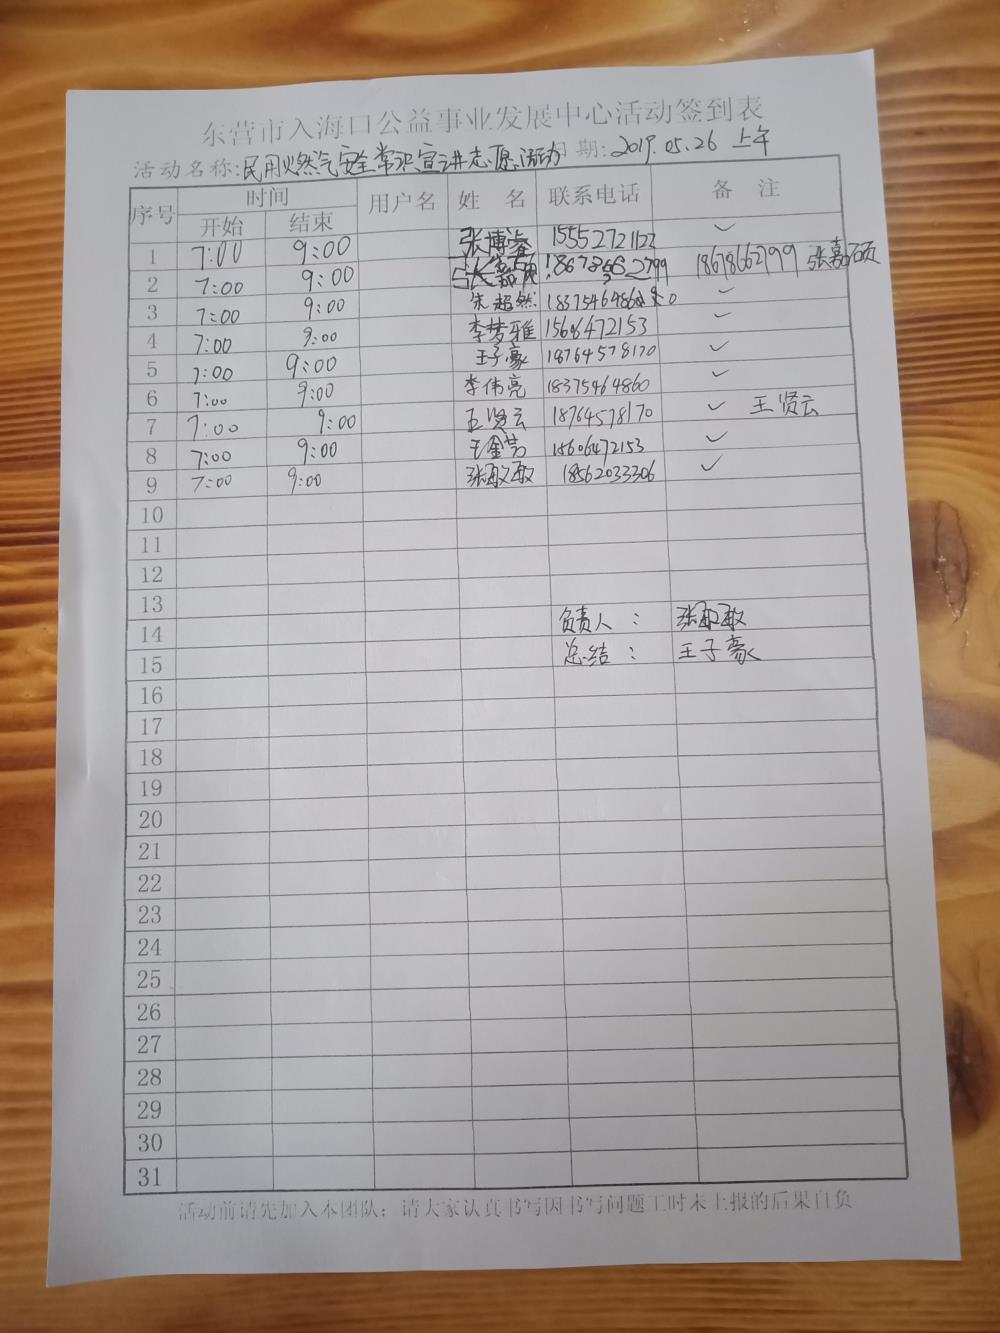 东营市入海口公益事业发展中心活动签到表
活动名称:民用燃气安全常识宣讲志愿活动 日期:2019.05.26 上午
序号 时间 用户名 姓 名 联系电话 备 注
开始 结束
1 7:00 9:00 张博睿 15552721122 ✓
2 7:00 9:00 张嘉硕 18678662799 张嘉硕
3 7:00 9:00 朱超然 ✓
4 7:00 9:00 李梦雅 15606472153 ✓
5 7:00 9:00 王子豪 18764578170 ✓
6 7:00 9:00 李伟亮 18375464860 ✓
7 7:00 9:00 王贤云 18764578170 ✓ 王贤云
8 7:00 9:00 王金芳 15606472153 ✓
9 7:00 9:00 张敏敏 18562033306 ✓
10
11
12
13
14 负责人： 张敏敏
15 总结： 王子豪
16
17
18
19
20
21
22
23
24
25
26
27
28
29
30
31
活动前请先加入本团队；请大家认真书写因书写问题工时未上报的后果自负